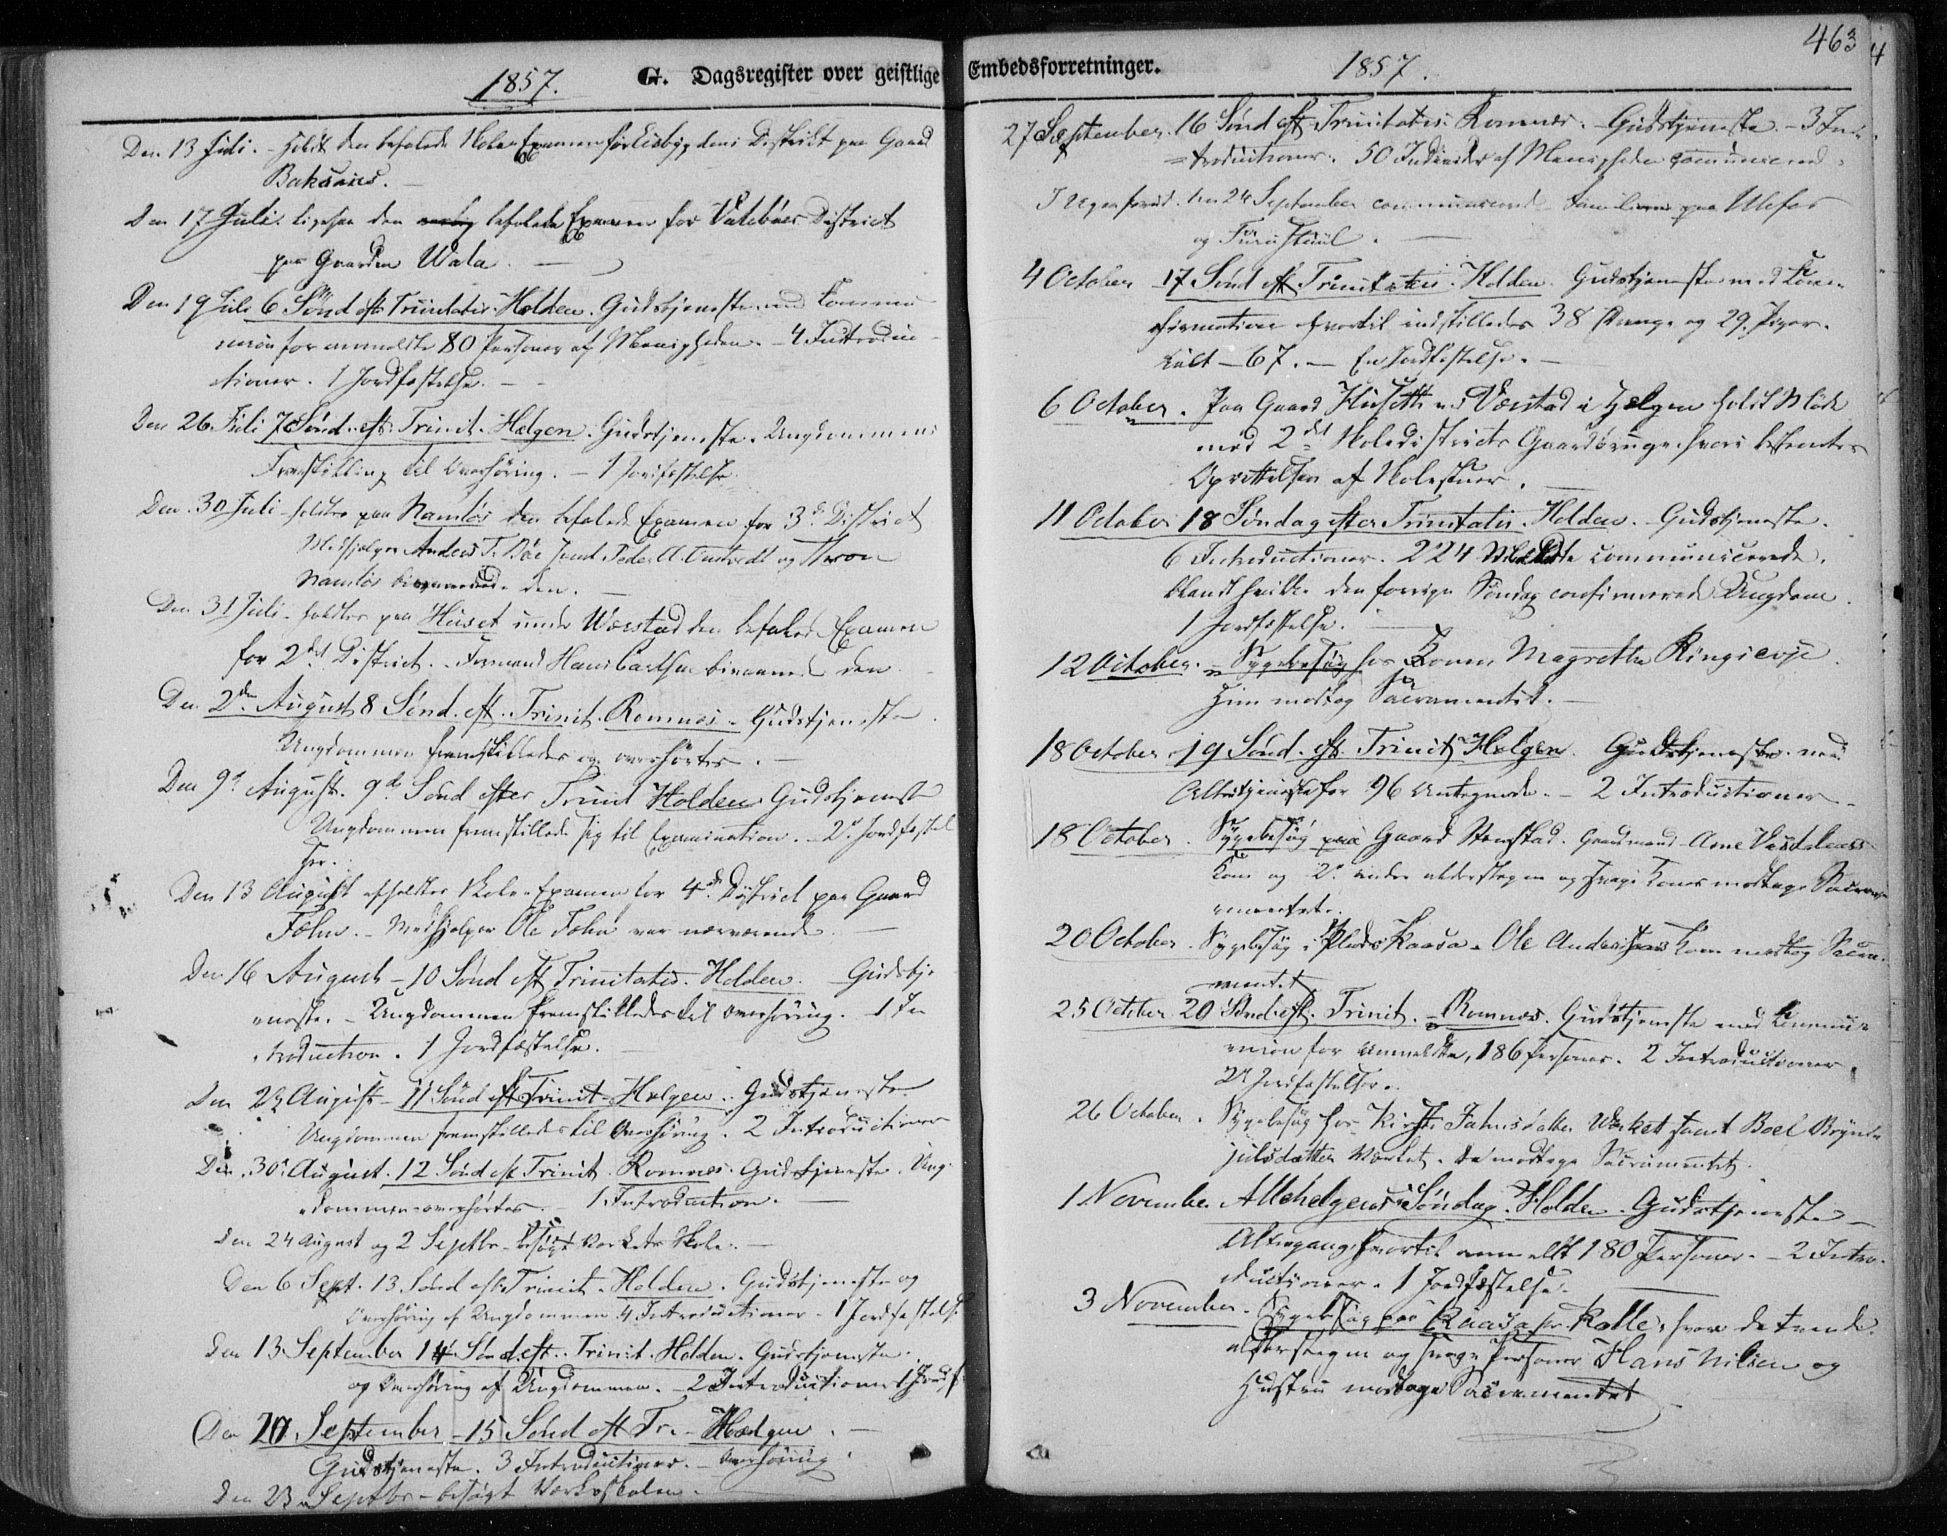 1857. G. Dagsregister over geistlige
Den 13 Juli. - holdt den befalede Skole-Examen for District paa Gaard
Baksaas.
Den 17 Juli. ligesaa den befalede Examen for Valebøes District
paa Gaarden Wala.
Den 19 Juli 6 Sønd. eft. Trinitatis. Holden. Gudstjeneste med Commu-
nion for anmeldte 80 Personer af Menigheden. - 4 Introduc-
tioner. 1 Jordfæstelse. -
Den 26 Juli 7 Sønd. eft. Trinit. Helgen. Gudstjeneste. Ungdommens
Fremstilling til Overhøring. - 1 Jordfæstelse.
Den 30 Juli holdtes paa Namløs den befalede Examen for 3d. District
Medhjelper Anders T. samt Peder A. og
Namløs bivaanede den.
Den 31 Juli. holdtes paa Huset under Wærstad den befalede Examen
for 2det District. - Formand Hans bivaanede den
Den 2den August 8 Sønd. eft. Trinit. Romnes - Gudstjeneste
Ungdommen fremstilledes og overhørtes.
Den 9d August. 9de Sønd efter Trinit Holden Gudstjeneste
Ungdommen fremstillede sig til Examination. - 2 Jordfæstel-
ser.
Den 13 August afholdtes Skole-Examen for 4de District paa Gaard
Fæhn. - Medhjelper Ole Fæhn var nærværende.
Den 16 August - 10 Sønd eft Trinitatis. Holden. Gudstje-
neste. - Ungdommen fremstilledes til Overhøring. 1 In-
troduction. 1 Jordfæstelse.
Den 23 August - 11 Sønd eft Trinit - Helgen. Gudstjeneste
Ungdommen fremstilledes til Overhøring. 2 Introductioner
Den 30 August. 12 Sønd eft Trinit. Romnes. Gudstjeneste. Ung-
dommen overhørtes. - 1 Introduction.
Den 24 August og 2 Septbr. - besøgt Værkets Skole.
Den 6 Sept. 13 Sønd eft. Trinit. Holden. Gudstjeneste og
Overhøring af Ungdommen 4 Introductioner - 1 Jordfæstelse
Den 13 September 14 Sønd. eft. Trinit. Holden. Gudstjeneste.
og Overhøring af Ungdommen. - 2 Introductioner 1 Jordf
Den 20 September - 15 Sønd eft Tr. - Hælgen.
Gudstjeneste. 3 Introductioner. - Overhøring.
Den 23 Septbr - besøgt Værksskolen.
Embedsforretninger. 1857. 463
27 September. 16 Sønd eft Trinitatis. Romnes. Gudstjeneste. - 3 In-
troductioner. 50 Individer af Menigheden communicered.
I Ugen forud den 24 September communicerede Familierne paa Ulefos
og
4 October 17 Sønd eft Trinitatis. Holden. Gudstjeneste med Con-
firmation hvortil indstilledes 38 Drenge og 29 Piger.
Ialt - 67. - En Jordfæstelse. -
6 October. Paa Gaard Huseth ved Værstad i Hælgen holdt Møde
med 2det Skoledistricts Gaardbruger hvori bestemtes
Oprettelsen af Skolestuer.
11 October 18 Søndag efter Trinitatis. Holden. Gudstjeneste.
6 Introductioner. 224 communicerede.
blandt hvilke den forrige Søndag confirmerede Ungdom.
1 Jordfæstelse.
12 October. - Sygebesøg hos Konen Magrethe Ringsevje.
Hun modtog Sacramentet. -
18 October 19 Sønd. eft. Trinit. Helgen. Gudstjeneste med
Altertjeneste for 96 Antegnede. - 2 Introductioner
18 October. Sygebesøg paa Gaard Stenstad. Gaardmand Arne
Kone og 2 andre alderstegne og svage Koner modtoge Sacra-
mentet.
20 October. Sygebesøg i Plads Kaasa. Ole Andersens Kone modtog Sacra-
mentet
25 October 20 Sønd eft. Trinit. - Romnes. Gudstjeneste med Commu-
nion for anmeldte, 186 Personer. 2 Introductioner
2 Jordfæstelser.
26 October. Sygebesøg hos Værket samt Boel Bryn-
julsdatter Værket. De modtoge Sacramentet.
1 November Allehelgens Søndag. Holden. Gudstjeneste -
Altergang, hvortil anmeldt 180 Personer. - 2 Intro-
ductioner. 1 Jordfæstelse.
3 November. Sygebesøg paa Kaasa hvor de tvende
alderstegne og svage Personer Hans Nilsen og
Hustru modtoge Sacramentet